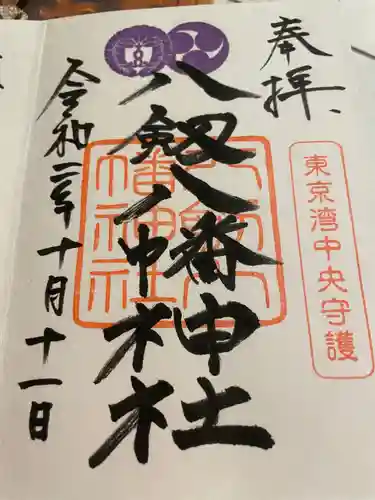 奉拝
東京湾中央守護
八剱八幡神社
八剱八幡神社
令和二年十月十一日